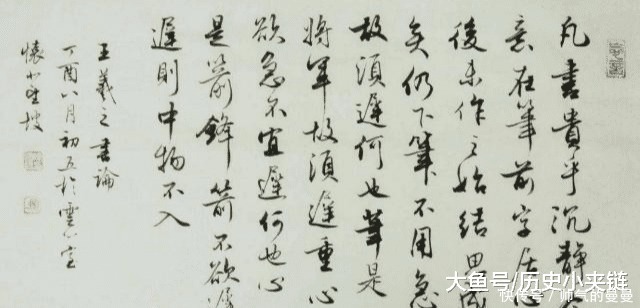 凡書貴乎沉靜
意在筆前字居
後未作之始結思成
矣仍下筆不用急
故須遲何也筆是
將軍故須遲重心
欲急不宜遲何也心
是箭鋒箭不欲遲
遲則中物不入
王羲之書論
丁酉八月初五於雲室
懷坡
大鱼号/历史小夹链
快传号/帅气的曼曼